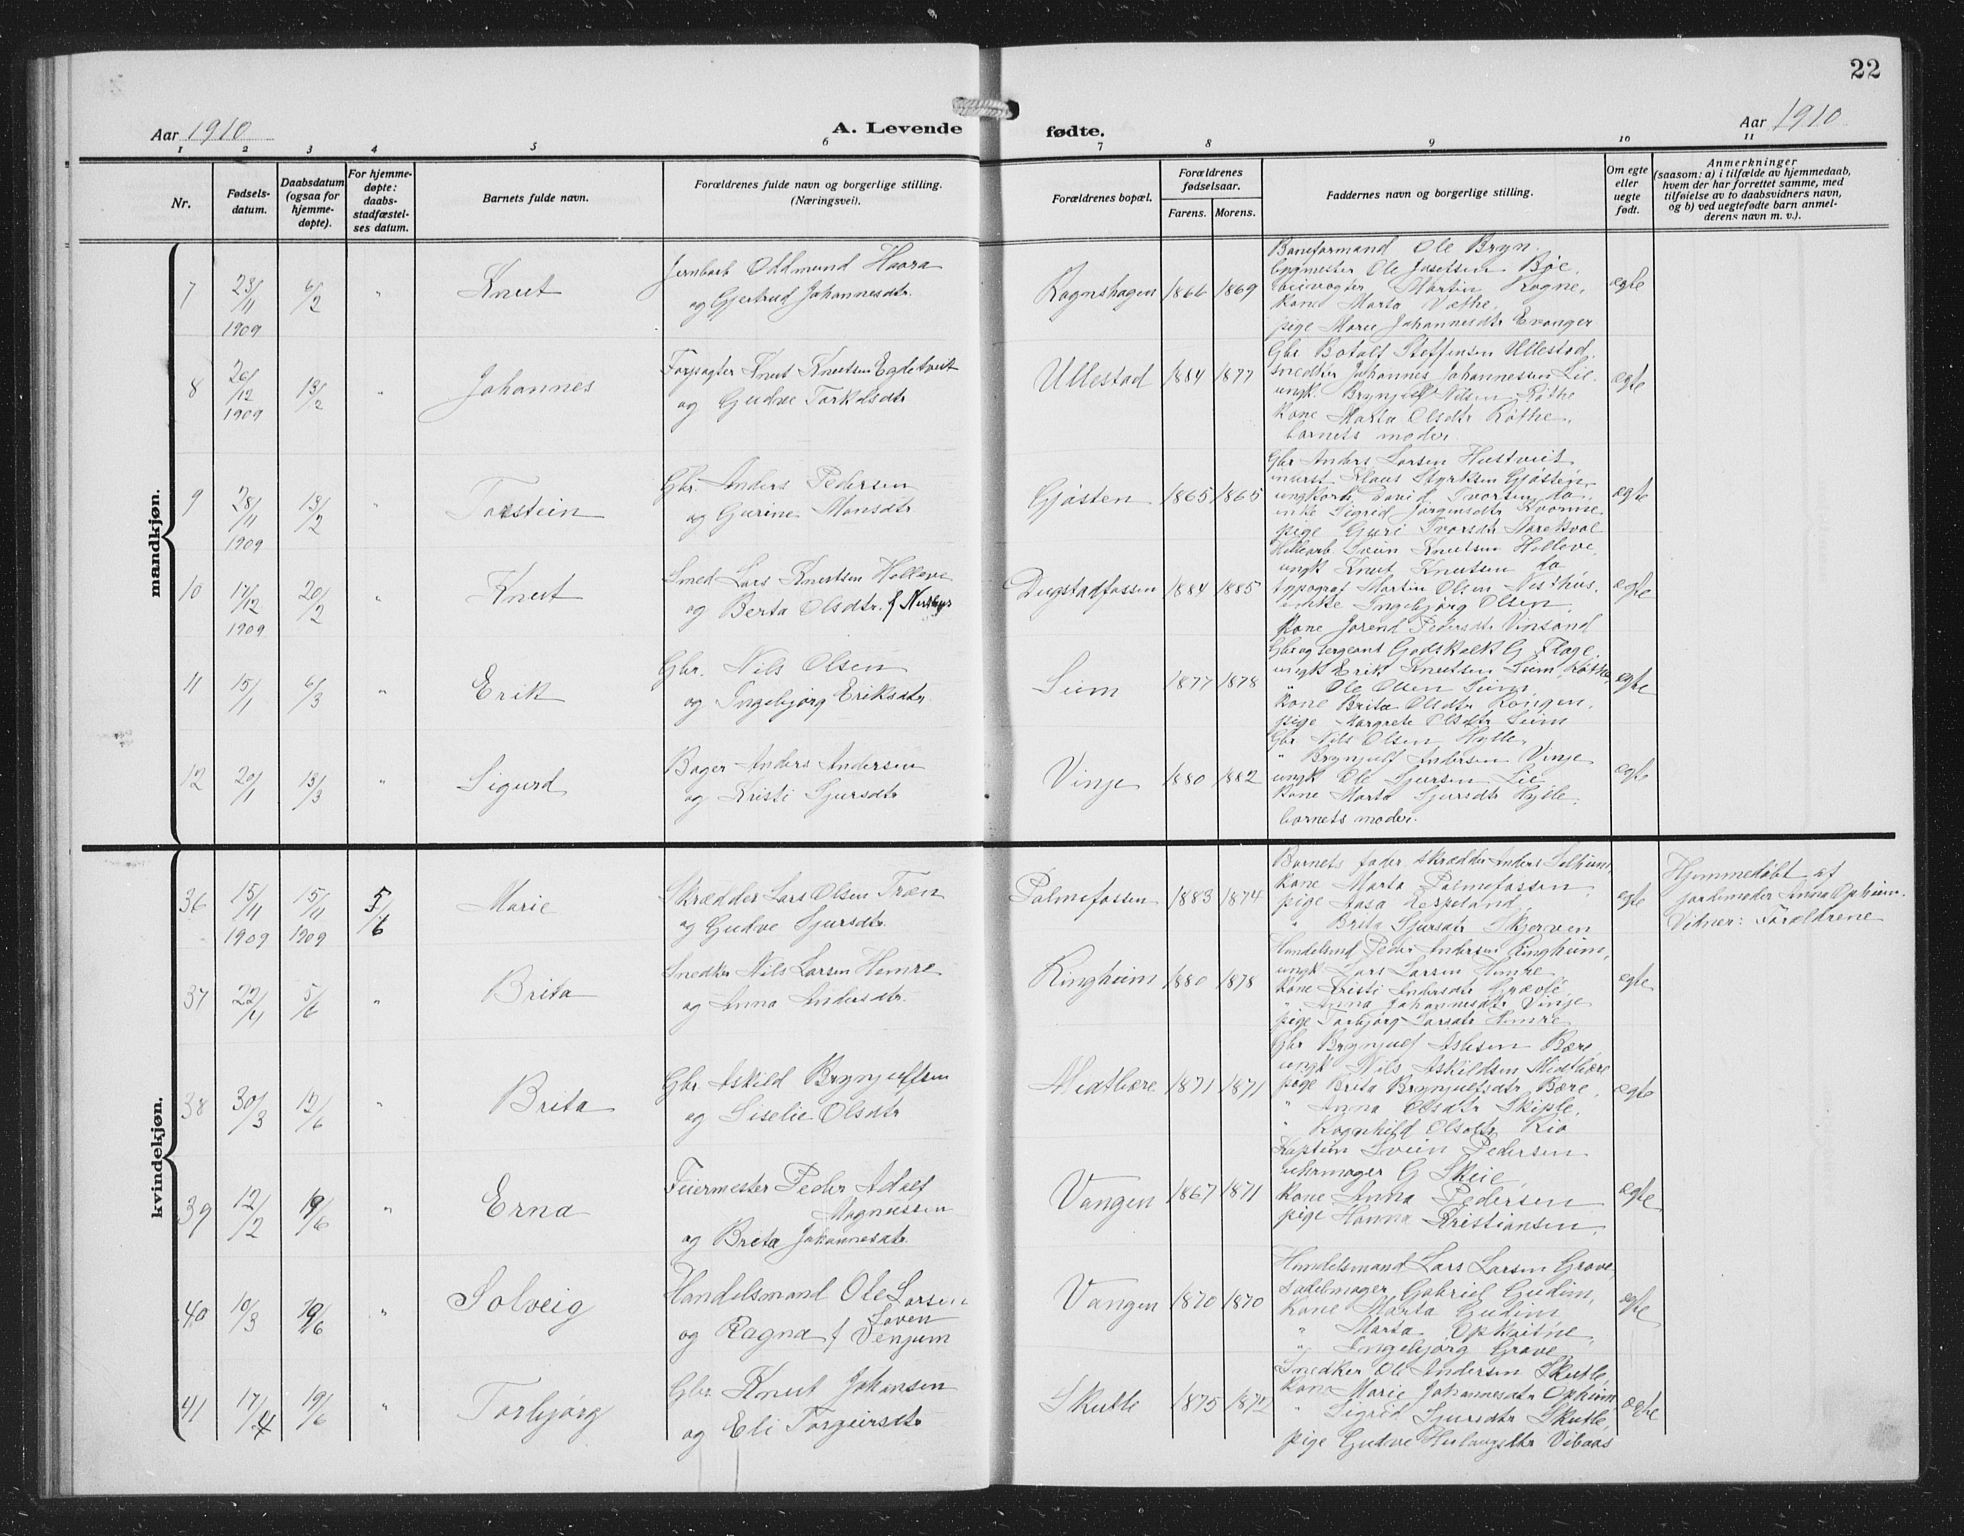 22
Aar 1910
A. Levende fødte.
Aar 1910
1 2 3 4 5 6 7 8 9 10 11
Nr.
Fødsels-
datum.
Daabsdatum
(ogsaa for
hjemme-
døpte).
For hjemme-
døpte:
daabs-
stadfæstel-
ses datum.
Barnets fulde navn.
Forældrenes fulde navn og borgerlige stilling.
(Næringsvei).
Forældrenes bopæl.
Forældrenes
fødselsaar.
Farens. Morens.
Faddernes navn og borgerlige stilling.
Om egte
eller
uegte
født.
Anmerkninger
(saasom: a) i tilfælde av hjemmedaab,
hvem der har forrettet samme, med
tilføielse av to daabsvidners navn,
og b) ved uegtefødte barn anmel-
derens navn m. v.).
mandkjøn.
7
23/11
1909
6/2
"
Knut
Jernbarb Oddmund Haara
og Gjertrud Johannesdtr.
Rognshagen
1866 1869
Baneformand Ole Bryn.
Bygmester Ole Josefsen Bøe,
Martin Rogne,
kone Marta Vethe,
pige Marie Johannesdtr Evanger
egte
8
26/12
1909
13/2
"
Johannes
Forpagter Knut Knutsen Egdetveit
og Gudve Torkelsdtr
Ullestad
1884 1877
Gbr Botolf Steffensen Ullestad.
Snedker Johannes Johannessen Lie.
ungk. Brynjulf Nilsen Røthe
kone Marta Olsdtr Røthe,
barnets moder.
egte
9
28/11
1909
13/2
"
Torstein
Gbr. Anders Pedersen
og Gurine Monsdtr
Gjøsten
1865 1865
Gbr Anders Larsen Hustveit
Klaus Styrksen Gjøstein,
David Ivarsen do,
enke Sigrid Jørgensdtr Kvamme
pige Guri Ivarsdtr
egte
10
17/12
1909
20/2
"
Knut
Smed Lars Knutsen Holleve
og Berta Olsdtr. f Nesthus
Dugstadfossen
1884 1885
Sven Knutsen Holleve,
ungk Knut Knutsen do
typograf Martin Olsen Nesthus,
enke Ingebjørg Olsen,
kone Jorend Pedersdtr Vinsand
egte
11
15/1
6/3
"
Erik
Gbr. Nils Olsen
og Ingebjørg Eriksdtr.
Seim
1877 1878
Gbr og sergeant Godskalk G Flage,
ungk Erik Knutsen Seim, Røthe,
" Ole Olsen Seim,
kone Brita Olsdtr Rongen,
pige Margrete Olsdtr Seim
egte
12
20/1
13/3
"
Sigurd
Bager Anders Andersen
og Kristi Sjursdtr
Vinje
1880 1882
Gbr Nils Olsen Hylle,
" Brynjulf Andersen Vinje
ungk Ole Sjursen Lie
kone Marta Sjursdtr Hylle,
barnets moder.
egte
kvindekjøn.
36
15/11
1909
15/11
1909
5/6
Marie
Skrædder Lars Olsen Træn
og Gudve Sjursdtr.
Palmefossen
1883 1874
Barnets fader, skrædder Anders Selheim,
kone Marta Palmefossen
pige Aasa Lespeland,
" Brita Sjursdtr Skjerven
egte
Hjemmedøbt af
jordemoder Anna Opheim.
Vidner: Forældrene
37
22/4
5/6
"
Brita
Snedker Nils Larsen Hemre
og Anna Andersdtr.
Ringheim
1880 1878
Handelsmd Peder Andersen Ringheim,
ungk Lars Larsen Hemre
kone Kristi Andersdtr Grævle,
" Anna Johannesdtr Vinje
pige Torbjørg Larsdtr Hemre
egte
38
30/3
12/6
"
Brita
Gbr Askild Brynjulfsen
og Liselie Olsdtr
Midtbære
1871 1871
Gbr Brynjulf Bære,
ungk Nils Askildsen Midtbære
pige Brita Brynjulfsdtr Bære,
" Anna Olsdtr Skiple,
" Ragnhild Olsdtr Rio
egte
39
12/2
19/6
"
Erna
Feiermester Peder Adolf
Magnussen
og Brita Johannesdtr.
Vangen
1867 1871
Kaptein Svein Pedersen
uhrmager G Skeie,
kone Anna Pedersen
pige Hanna Kristiansen,
egte
40
10/3
19/6
"
Solveig
Handelsmand Ole Larsen
Loven
og Ragna f Venjum
Vangen
1870 1870
Handelsmand Lars Larsen Grove,
Sadelmager Gabriel Gudim,
kone Marta Gudim,
" Marta Opkvitne,
" Ingebjørg Grove
egte
41
17/4
19/6
"
Torbjørg
Gbr Knut Johansen
og Eli Torgeirsdtr
Skutle
1875 1872
Snedker Ole Andersen Skutle,
kone Marie Johannesdtr Opheim,
" Sigrid Sjursdtr Skutle,
pige Gudve
egte